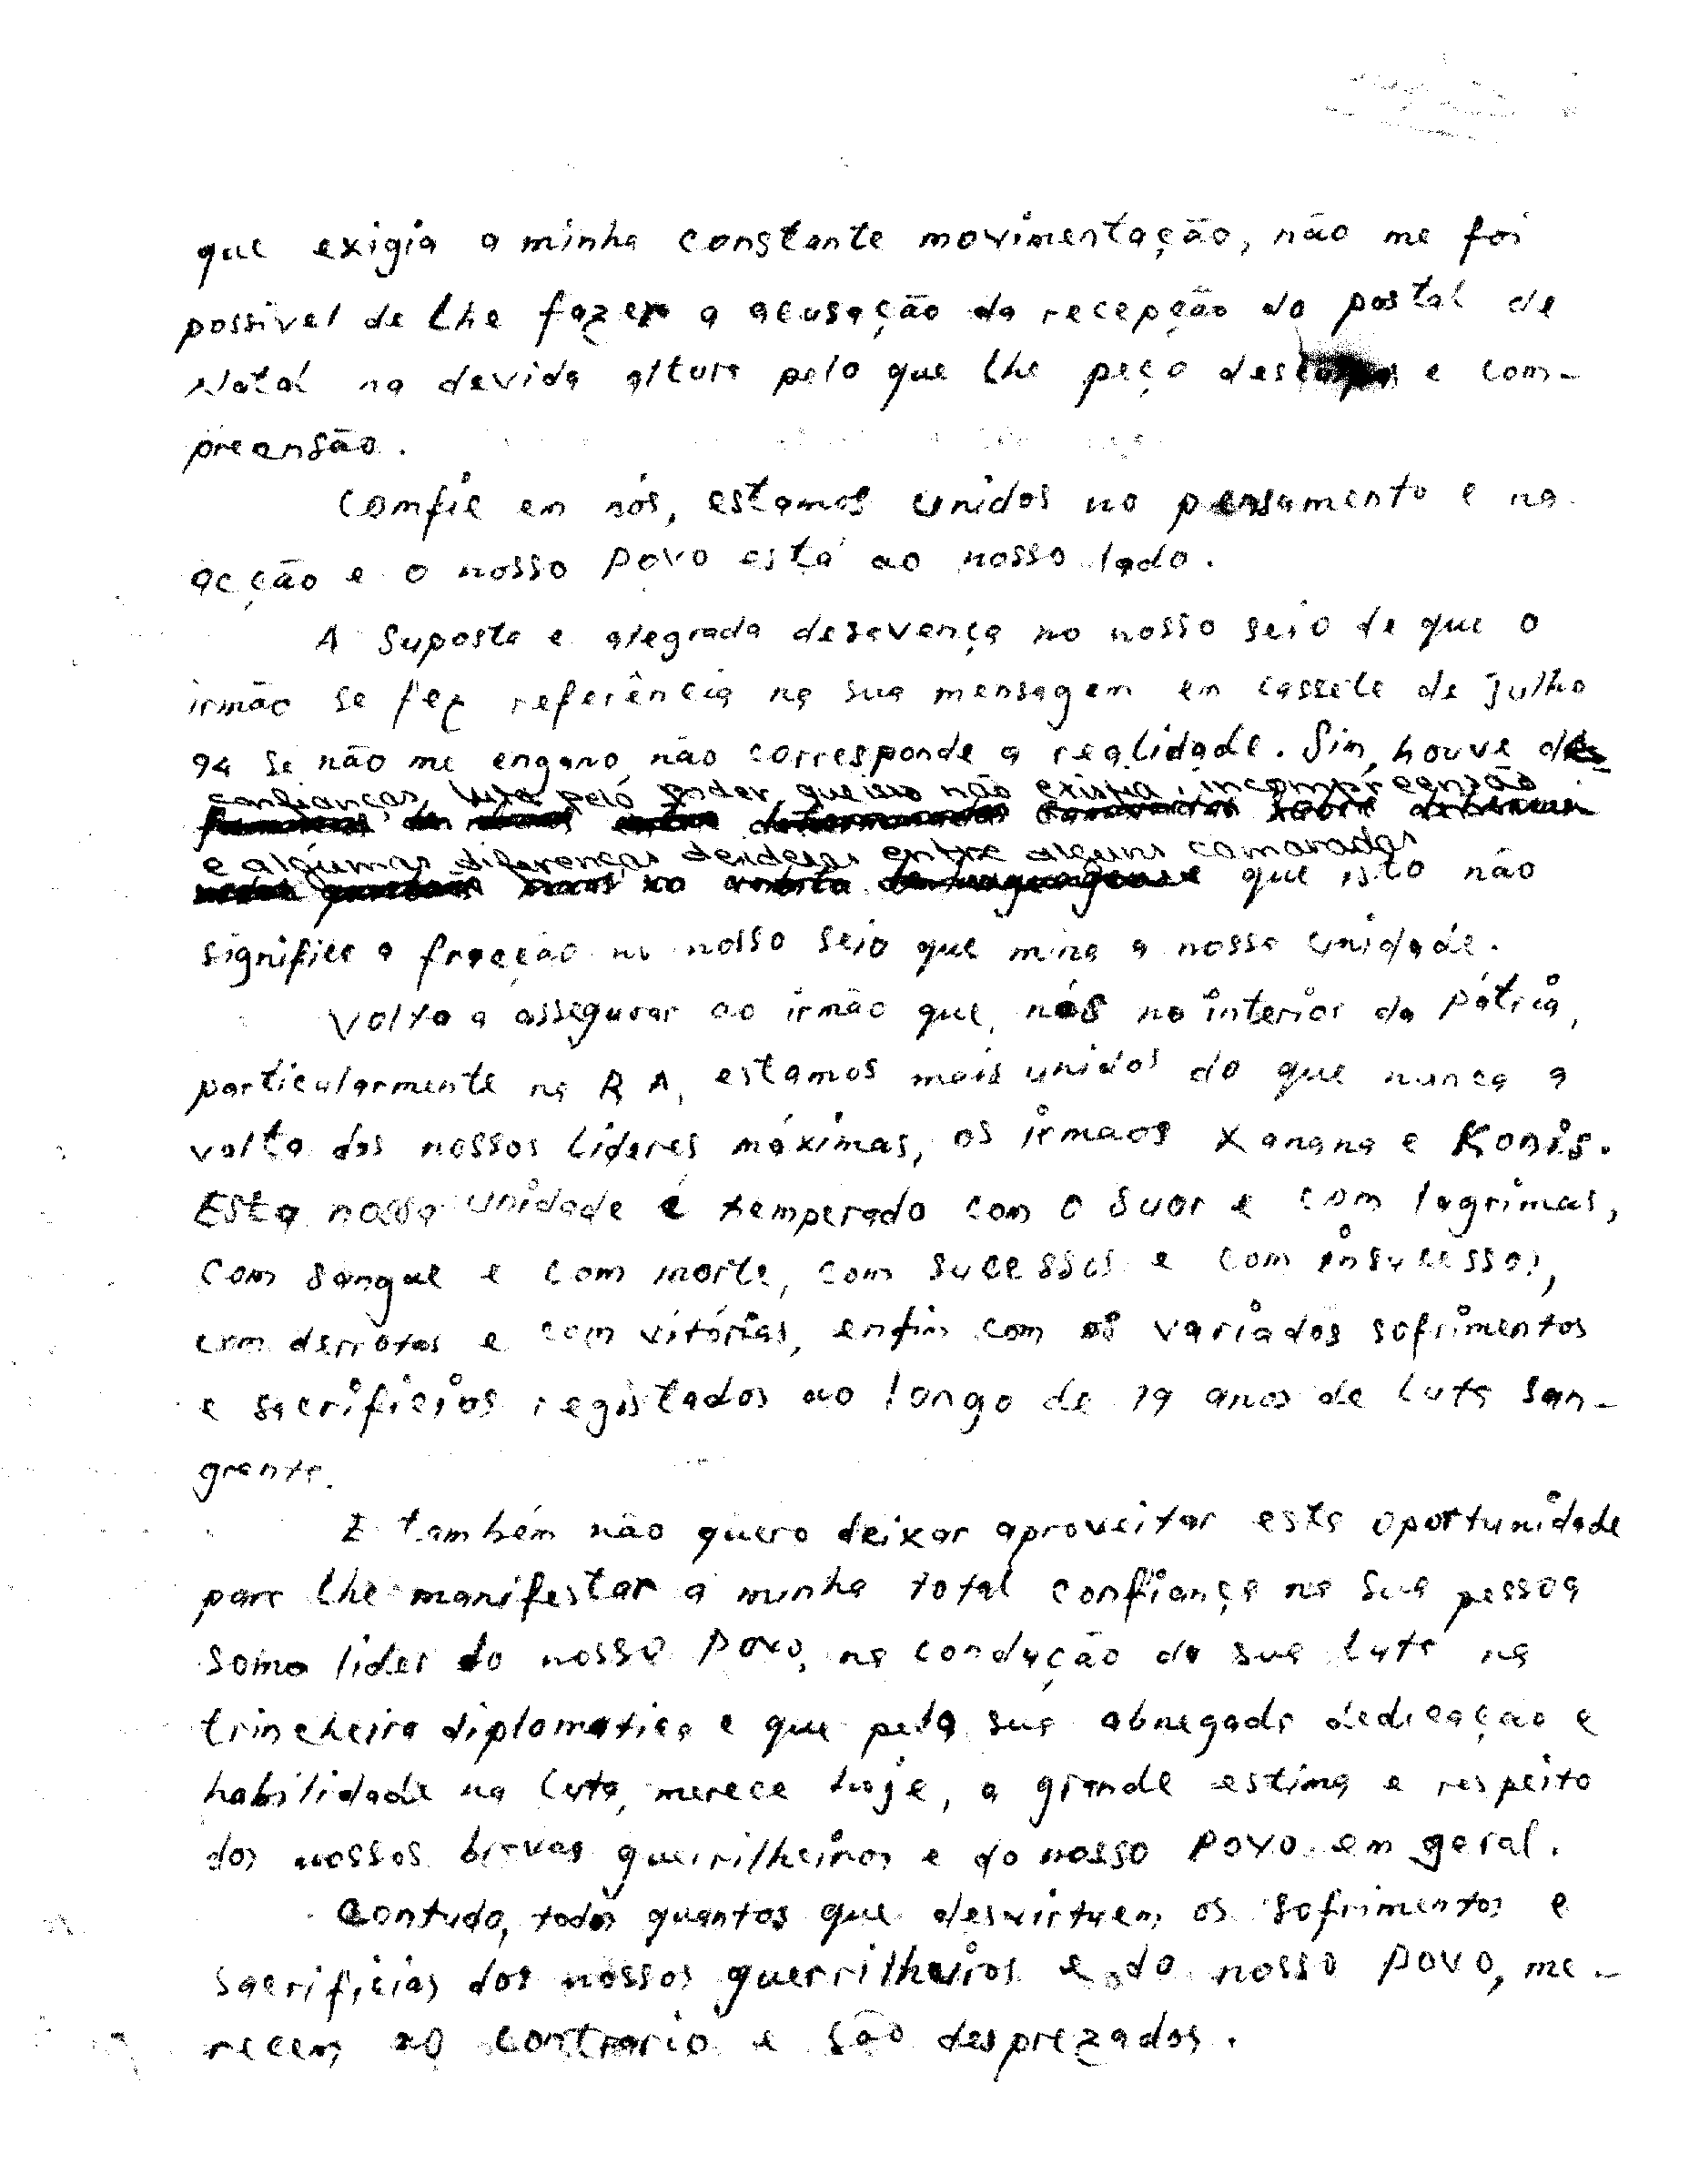 que exigia a minha constante movimentação, não me foi
possivel de lhe fazer a acusação da recepção do postal de
Natal na devida altura pelo que lhe peço desculpas e com-
preensão.
Comfie em nós, estamos unidos no pensamento e na
acção e o nosso Povo está ao nosso lado.
A suposta e alegrada desavença no nosso seio de que o
irmão se fez referência na sua mensagem em cassete de julho
94 se não me engano, não corresponde a realidade. Sim, houve des-
confianças, luta pelo poder, que isso não existia; incompreensão
e algumas diferenças de ideias entre alguns camaradas
que isto não
significa a fracção no nosso seio que mina a nossa unidade.
Volto a assegurar ao irmão que, nós no interior da Pátria,
particularmente na R A, estamos mais unidos do que nunca a
volta dos nossos lideres máximas, os irmãos Xanana e Konis.
Esta nossa unidade é temperado com o suor e com lagrimas,
com sangue e com morte, com sucessos e com insucessos,
com derrotas e com vitórias, enfim com os variados sofrimentos
e sacrificios registados ao longo de 19 anos de luta san-
grenta.
E também não quero deixar aproveitar esta oportunidade
para lhe manifestar a minha total confiança na sua pessoa
somo lider do nosso Povo, na condução da sua luta na
trincheira diplomatica e que pela sua abnegada dedicação e
habilidade na luta, merece hoje, a grande estima e respeito
dos nossos bravos guerrilheiros e do nosso Povo em geral.
Contudo, todos quantos que desvirtuem os sofrimentos e
sacrificios dos nossos guerrilheiros e do nosso Povo, me-
recem ao contrario e são desprezados.